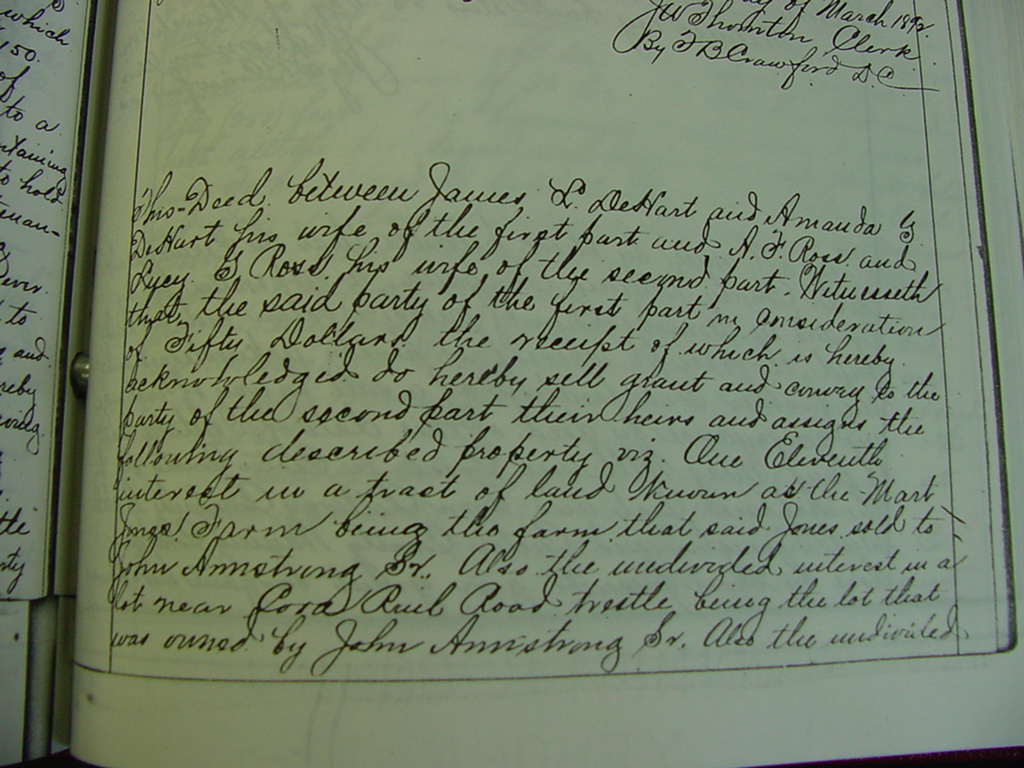 which
150.
of
to a
ntaining
to hold
tenan-
to
and
reby
the
rty
day of March 1892.
JW Thornton Clerk
By F B Crawford D.C.
This Deed between James L. DeHart and Amanda G
DeHart his wife of the first part and A. F. Ross and
Lucy G Ross his wife of the second part. Witnesseth
that, the said party of the first part in consideration
of Fifty Dollars the receipt of which is hereby
acknowledged do hereby sell grant and convey to the
party of the second part their heirs and assigns the
following described property viz. One Eleventh
interest in a tract of land known as the Mart
Jones' Farm being the farm that said Jones sold to
John Armstrong Sr. Also the undivided interest in a
lot near Rail Road trestle being the lot that
was owned by John Armstrong Sr. Also the undivided